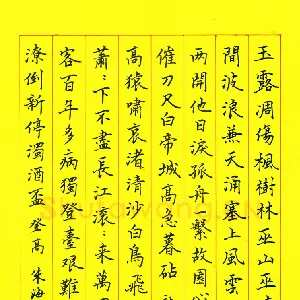 玉露凋傷楓樹林巫山巫
間波浪兼天涌塞上風雲
兩開他日淚孤舟一繫故園
催刀尺白帝城高急暮砧
高猿嘯哀渚清沙白鳥飛
蕭〻下不盡長江滾〻來萬
客百年多病獨登臺艱難
潦倒新停濁酒盃 登高 朱海